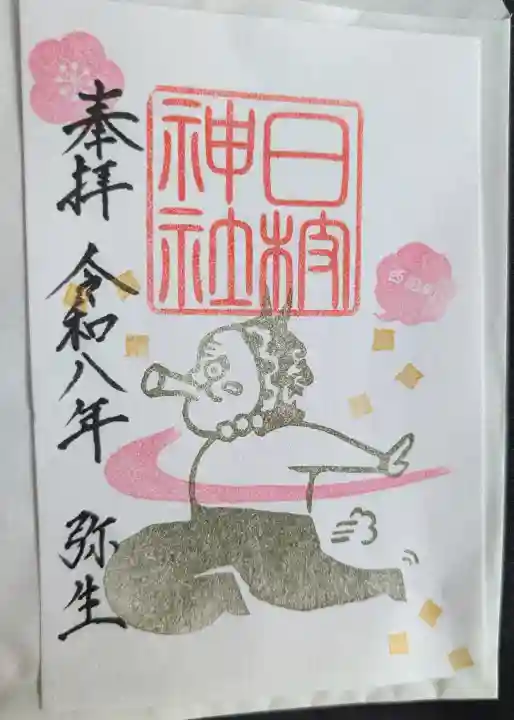 日枝
神社
奉拝 令和八年 弥生